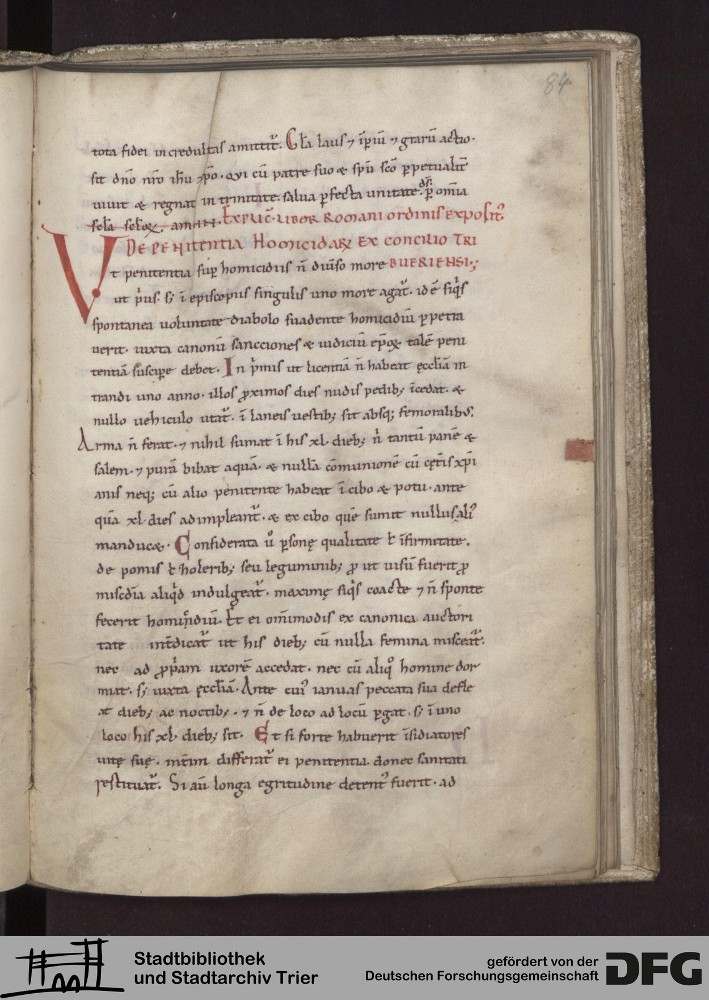 84
tota fidei incredulitas amittit᷒. Gl̄a laus ⁊ īp̄iū ⁊ gr̄arū actio.
sit dn̄o nr̄o ih̄u xp̄o. qui cū patre suo & sp̄u sc̄o p̱petualit̄
uiuit & regnat in trinitate. salua p̱fecta unitate. ds̄. p̱ om̄ia
sc̄la sc̄loꝝ. amen. EXPLIC̄ LIBOR ROMANI ORDINIS EXPOSIT᷒
DE PENITENTIA HOMICIDAꝝ EX CONCILIO TRI
Vt penitentia sup̱ homicidiis n̄ diuso more BURIENSI;
ut p̄us. s; ī episcopus singulis uno more agat᷒. id ē siq̄s
spontanea uoluntate diabolo suadente homicidiū p̱petra
uerit. iuxta canonū sancciones & iudiciū ep̄oꝝ talē peni
tentiā suscip̱e debet. In p̄mis ut licentiā n̄ habeat ęccl̄iā in
trandi uno anno. illos p̱ximos dies nudis pedib; īcedat. &
nullo uehiculo utat᷒. ī laneis uestib; sit absq; femoralibus.
Arma n̄ ferat. ⁊ nihil sumat ī his xl. dieb; n̄ tantū panē &
salem. ⁊ purā bibat aquā. & nullā cōmunionē cū cęt̄is xp̄i
anis neq; cū alio penitente habeat ī cibo & potu. ante
quā xl. dies adimpleant᷒. & ex cibo quē sumit nullus ali᷒
manducæ. Considerata u͛o p̱sonę qualitate ł īfirmitate.
de pomis ł holerib; seu leguminib; p̱ ut uisū fuerit p̱
miscd̄ia aliq̄d indulgeat᷒. maximę siq̄s coacte ⁊ n̄ sponte
fecerit homicidiū. Et ei om̄imodis ex canonica auctori
tate int̄dicat᷒ ut his dieb; cū nulla femina misceat᷒.
nec ad p̱p̄am uxorē accedat. nec cū aliq͛o homine dor
miat. s; iuxta ęccl̄iā. Ante cui᷒ ianuas peccata sua defle
at dieb; ac noctib;. ⁊ n̄ de loco ad locū p̱gat. s; ī uno
loco his xl. dieb; sit. Et si forte habuerit īsidiatores
uitę suę. int̄im differat᷒ ei penitentia donec sanitati
restituat᷒. Si aū longa egritudine detent᷒ fuerit. ad
Stadtbibliothek
und Stadtarchiv Trier
gefördert von der
Deutschen Forschungsgemeinschaft
DFG